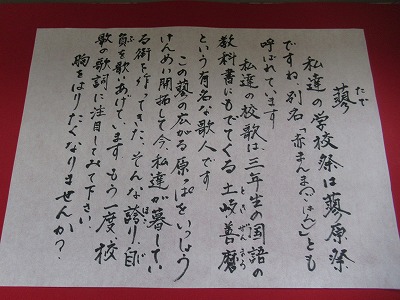 蓼
たで
私達の学校祭は蓼原祭
ですね 別名「赤まんま(ごはん)」とも
呼ばれています
私達の校歌は三年生の国語の
教科書にもでてくる土岐善麿
とき ぜんまろ
という有名な歌人です
この蓼の広がる原っぱをいっしょう
けんめい開拓して今、私達が暮してい
る街を作ってきた、そんな誇り、自
ほこ じ
負を歌いあげています もう一度、校
ふ
歌の歌詞に注目してみて下さい。
胸をはりたくなりませんか？